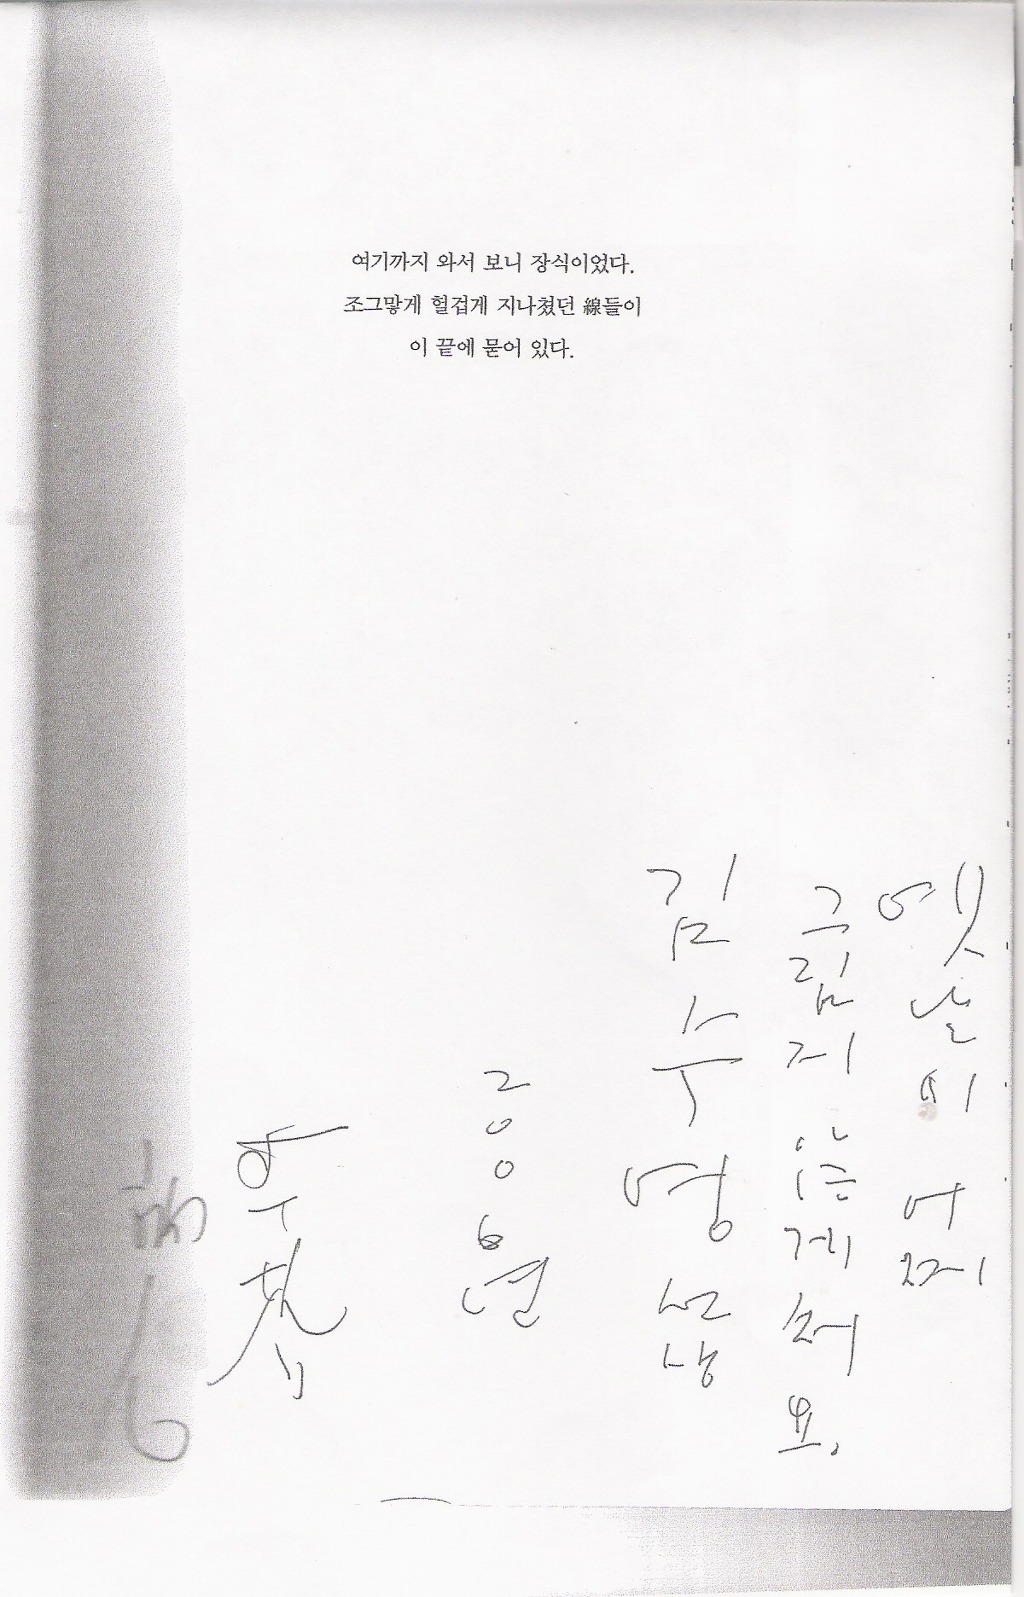 여기까지 와서 보니 장식이었다.
조그맣게 헐겁게 지나쳤던 線들이
이 끝에 묻어 있다.
옛날이 어찌
그립지 않
김수영 선생
2006년